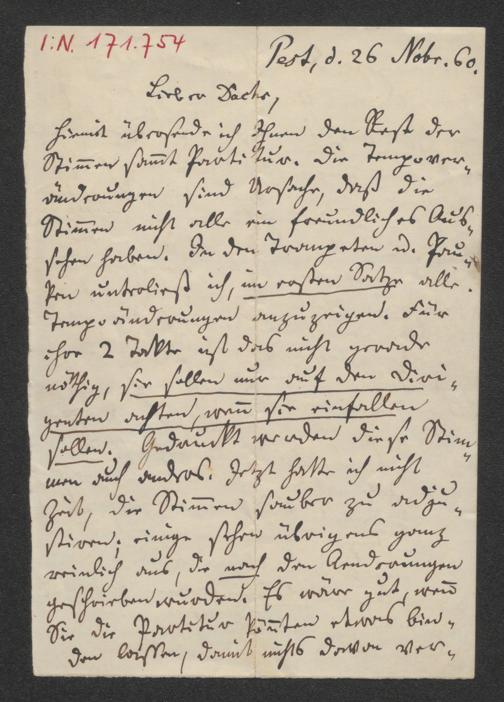 I.N. 171.754
Pest, d. 26 Nobr. 60.
Lieber Dachs,
Hiemit übersende ich Ihnen den Rest der
Stimmen sammt Partitur. Die Tempover-
änderungen sind Ursache, daß die
Stimmen nicht alle ein freundliches Aus-
sehen haben. In den Trompeten u. Pau-
ken unterließ ich, im ersten Satze alle
Tempoänderungen anzuzeigen. Für
ihre 2 Takte ist das nicht gerade
nöthig, sie sollen nur auf den Diri-
genten achten, wenn sie einfallen
sollen. Gedruckt werden diese Stim-
men auch anders. Jetzt hatte ich nicht
Zeit, die Stimmen sauber zu adju-
stiren; einige sehen übrigens ganz
reinlich aus, die nach den Aenderungen
geschrieben wurden. Es wäre gut, wenn
Sie die Partitur könnten etwas bin-
den lassen, damit nichts davon ver-